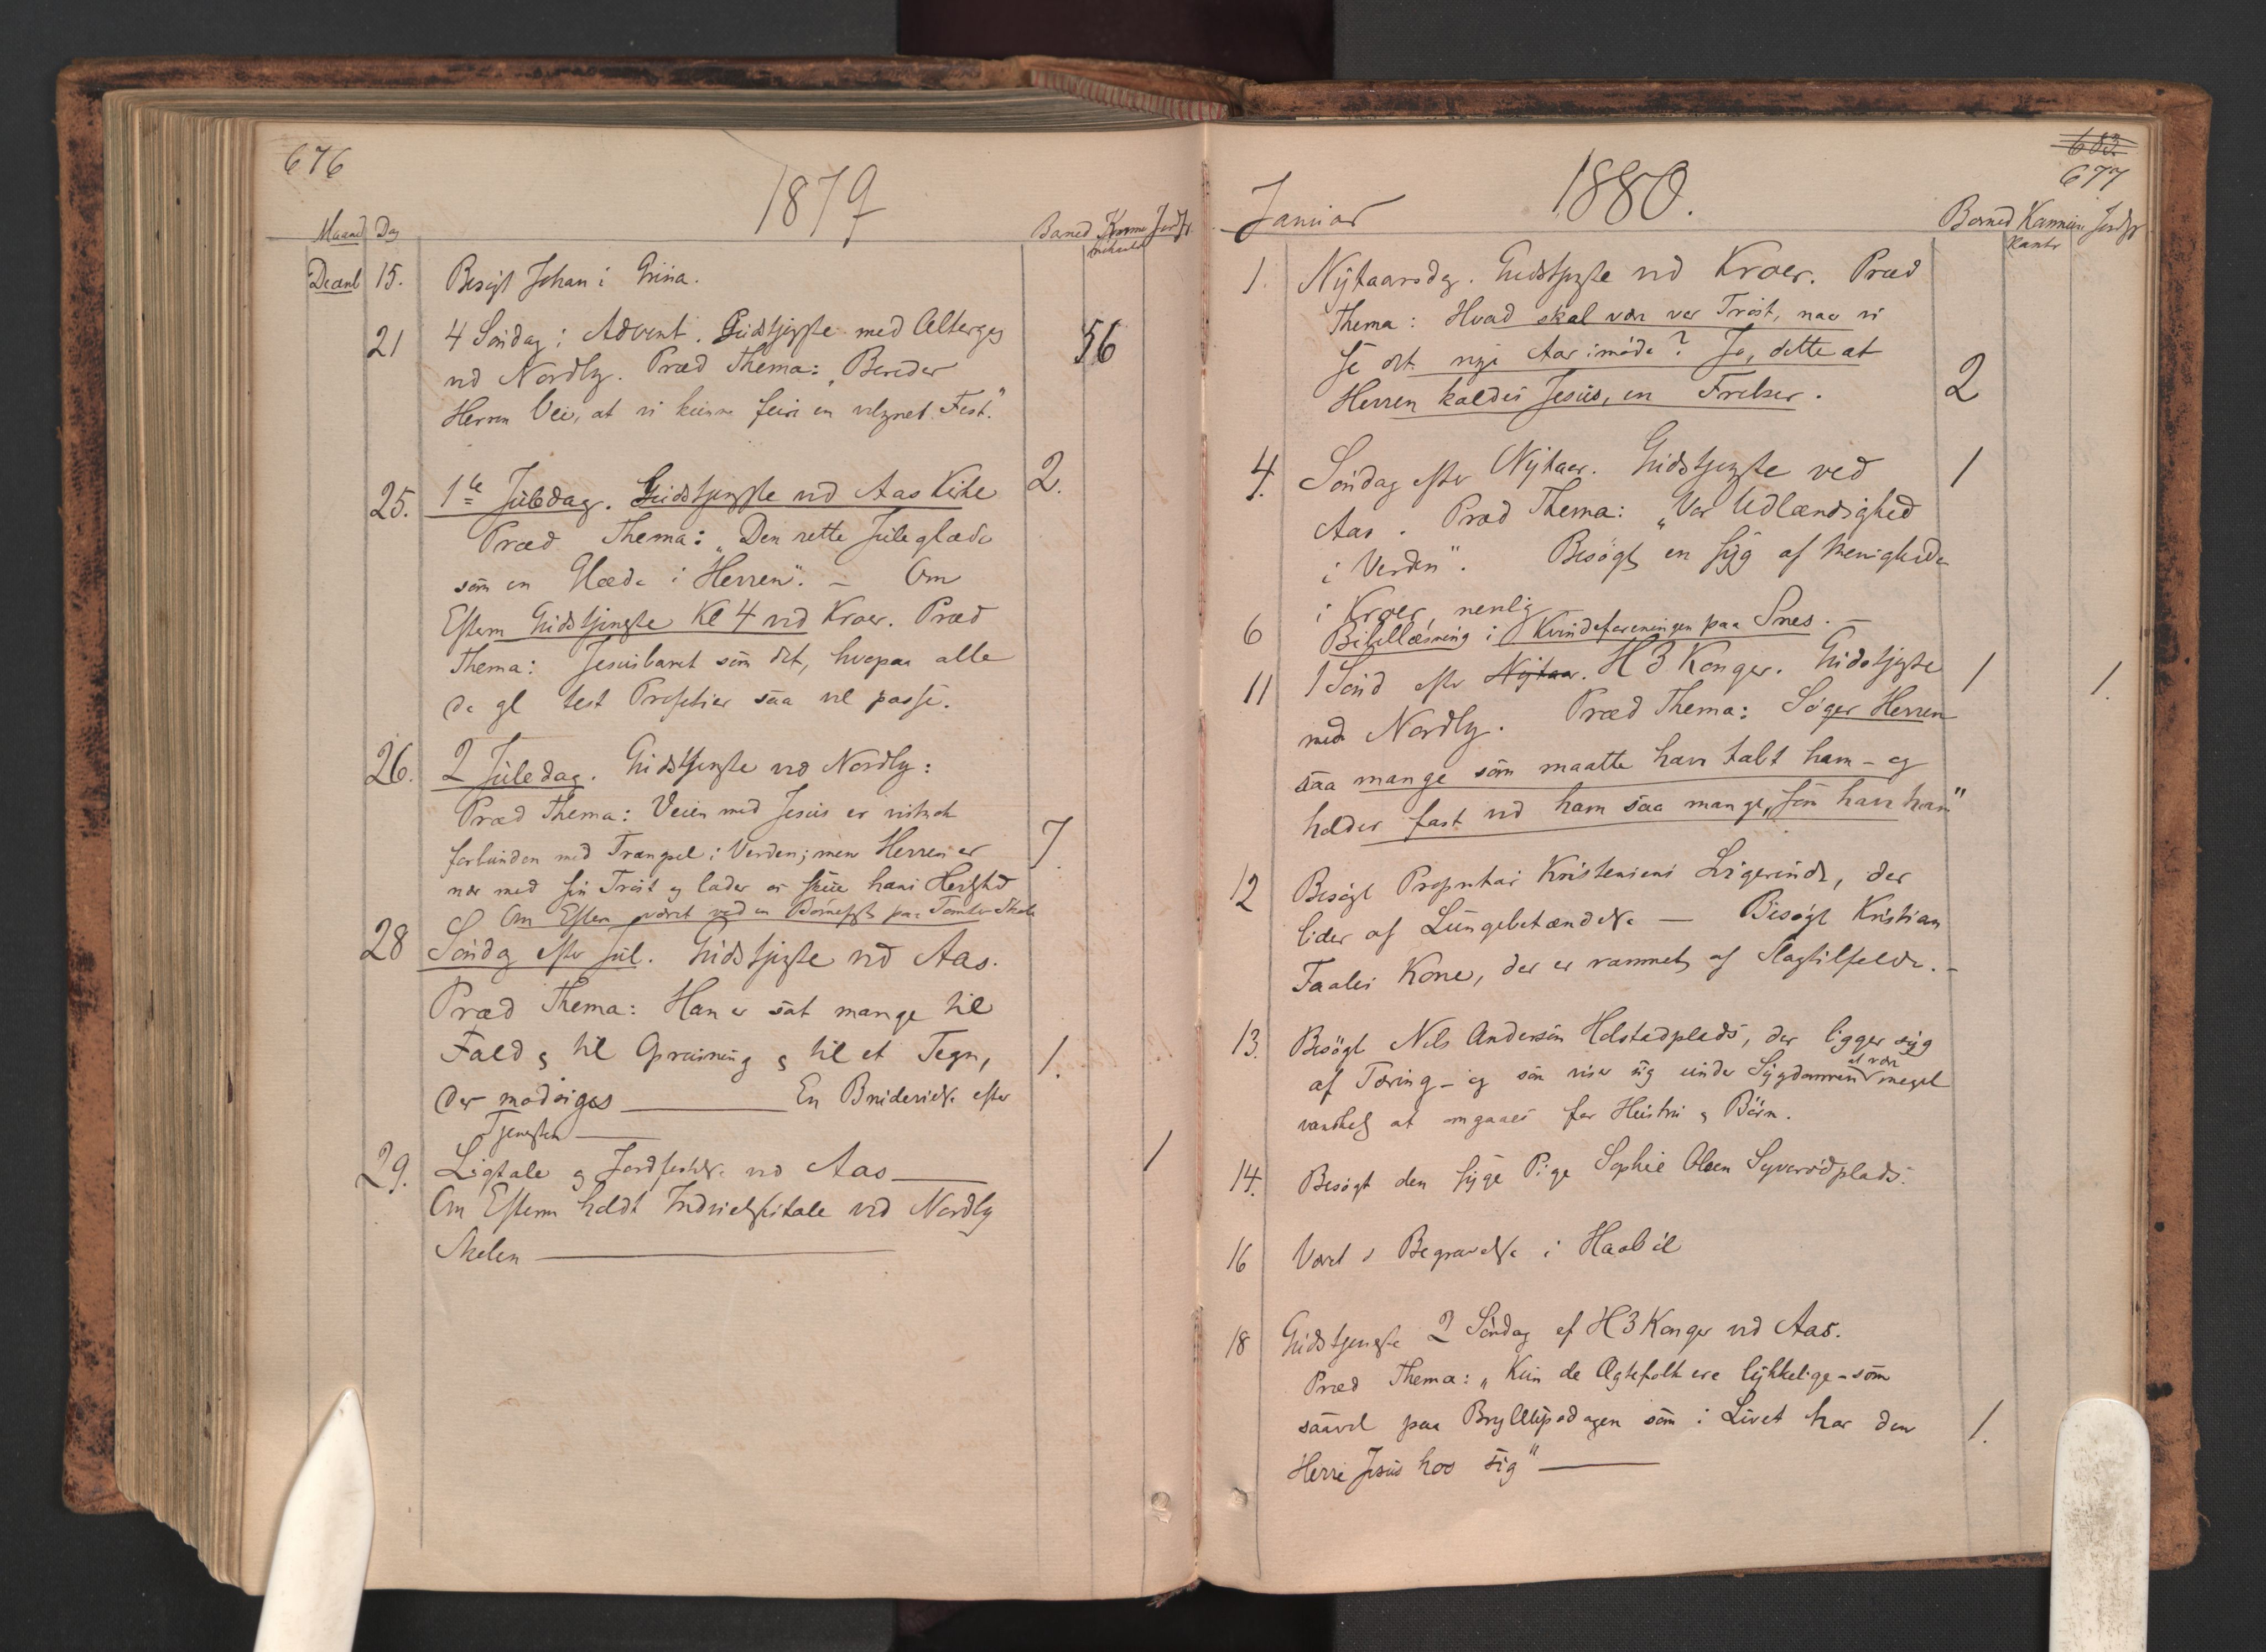 676
1879
Maaned Dag
Barned Kommu Jordf
nikanter
Decemb 15. Besøgt Johan i Grina.
21 4 Søndag i Advent. Gudstjeneste med Altergang 56
ved Nordby. Præd Thema: „Bereder
Herren Vei, at vi kunne feire en velsignet Fest."
25. 1ste Juledag. Gudstjeneste ved Aas Kirke 2.
Præd Thema: „Den rette Juleglæde
som en Glæde i Herren". – Om
Efterm Gudstjeneste Kl 4 ved Kroer. Præd
Thema: Jesusbarnet som det, hvorpaa alle
de gl test Profetier saa vel passe.
26. 2 Juledag. Gudstjeneste ved Nordby:
Præd Thema: Veien med Jesus er vistnok
forbunden med Trængsel i Verden; men Herren er 7.
nær med sin Trøst og lader os skue hans Herlighed
Om Efterm været ved en Børnefest paa Tomter Skole
28 Søndag efter Jul. Gudstjeneste ved Aas.
Præd Thema: Han er sat mange til
Fald og til Opreisning og til et Tegn, 1.
der modsiges — En Brudevielse efter
Tjenesten —
29. Ligtale og Jordfæstelse ved Aas — 1
Om Efterm holdt Indvielsestale ved Nordby
Skolen —
683
677
1880.
Januar
Barned Kommuni Jordf
kanter
1. Nytaarsdag. Gudstjeneste ved Kroer. Præd
Thema: Hvad skal være vor Trøst, naar vi
se det nye Aar imøde? Jo, dette at
Herren kaldes Jesus, en Frelser. 2
4. Søndag efter Nytaar. Gudstjeneste ved 1
Aas. Præd Thema: „Vor Udlændighed
i Verden". Besøgt en syg af Menigheden
i Kroer nemlig
6 Bibellæsning i Kvindeforeningen paa Snes. –
11 1 Sønd efter Nytaar. H 3 Konger. Gudstjeneste 1 1.
ved Nordby. Præd Thema: Søger Herren
saa mange som maatte have tabt ham – og
holder fast ved ham saa mange, som have ham"
12 Besøgt Proprietær Kristensens Logerinde, der
lider af Lungebetændelse — Besøgt Kristian
Faales Kone, der er rammet af Slagtilfælde. –
13. Besøgt Nils Andersen Holstadplads, der ligger syg
af Tæring – og som viser sig under Sygdommen at være meget
vanskelig at omgaaes for Hustru og Børn.
14. Besøgt den syge Pige Sophie Olsen Syverødplads.
16 Været i Begravelse i Haabøl
18 Gudstjeneste 2 Søndag ef H 3 Konger ved Aas.
Præd Thema: „Kun de Ægtefolk ere lykkelige – som
saavel paa Bryllupsdagen som i Livet har den 1.
Herre Jesus hos sig" —